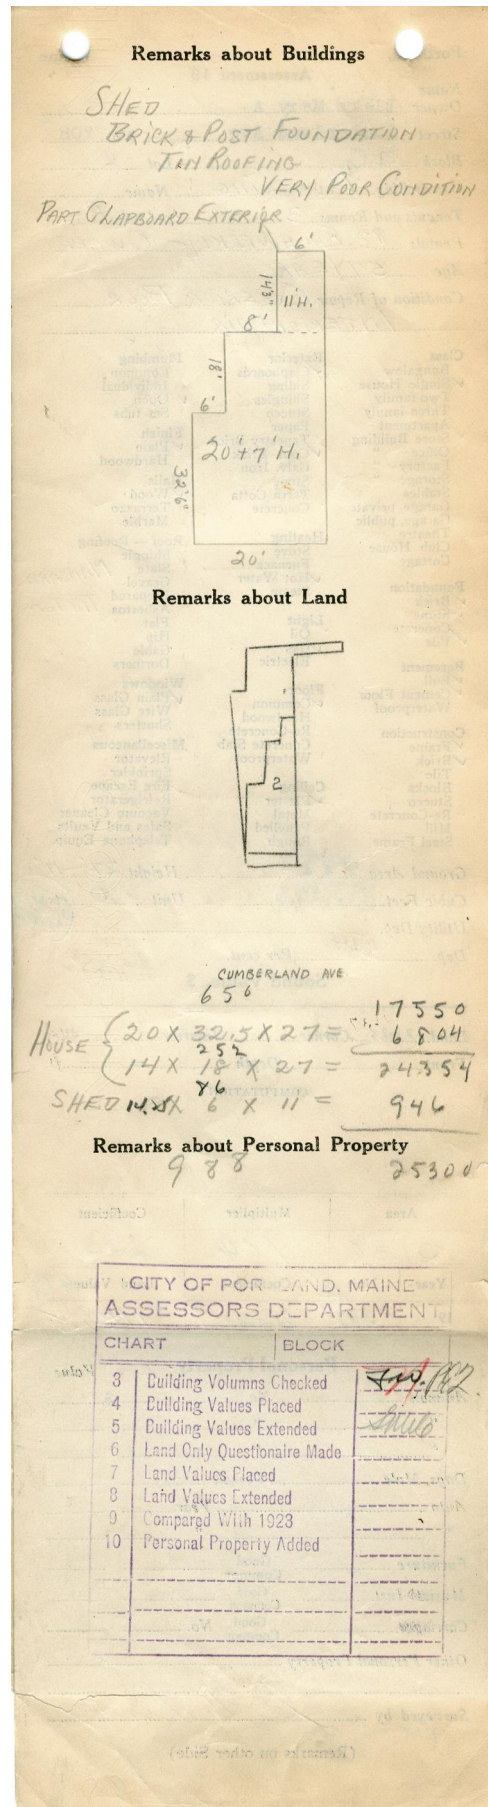 Remarks about Buildings
SHED
BRICK & POST FOUNDATION
TIN ROOFING
VERY POOR CONDITION
PART CLAPBOARD EXTERIOR
6'
14'3"
11'H.
8'
18'
6'
20'+7'H.
32'6"
20'
Remarks about Land
2
CUMBERLAND AVE
656
17550
HOUSE { 20 X 32.5 X 27 = 6804
252
14 X 18 X 27 = 24354
86
SHED 14.25 X 6 X 11 = 946
Remarks about Personal Property
988 25300
CITY OF PORTLAND, MAINE
ASSESSORS DEPARTMENT
CHART BLOCK
3 Building Volumns Checked
4 Building Values Placed
5 Building Values Extended
6 Land Only Questionaire Made
7 Land Values Placed
8 Land Values Extended
9 Compared With 1923
10 Personal Property Added